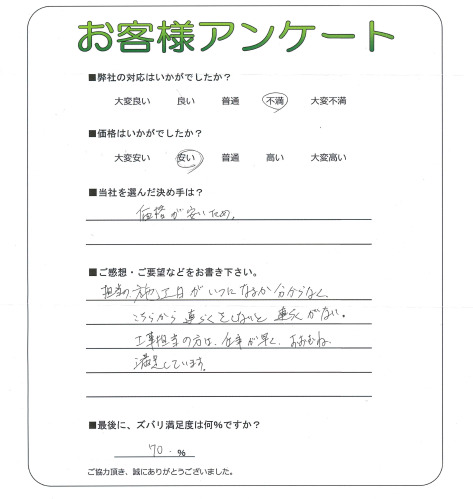 お客様アンケート
■弊社の対応はいかがでしたか？
大変良い 良い 普通 不満 大変不満
■価格はいかがでしたか？
大変安い 安い 普通 高い 大変高い
■当社を選んだ決め手は？
価格が安いため。
■ご感想・ご要望などをお書き下さい。
担当の施工日がいつになるか分からなく、
こちらから連らくをしないと連らくがない。
工事担当の方は、仕事が早く、おおむね
満足しています。
■最後に、ズバリ満足度は何％ですか？
70.％
ご協力頂き、誠にありがとうございました。